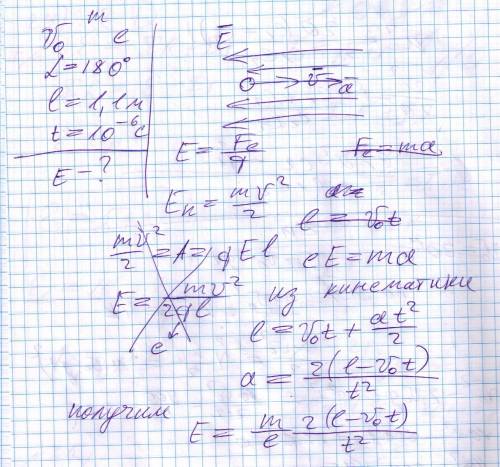 m
v₀ e
L = 180°
l = 1,1 м
t = 10⁻⁶ c
E - ?
E̅
v̅ a̅
E = Fe/q
Fe = ma
Eк = mv²/2
a =
l = v₀t
mv²/2 = A = qEl
eE = ma
E = mv²/2ql
e
из кинематики
l = v₀t + at²/2
a = 2(l - v₀t)/t²
получим
E = m/e 2(l - v₀t)/t²